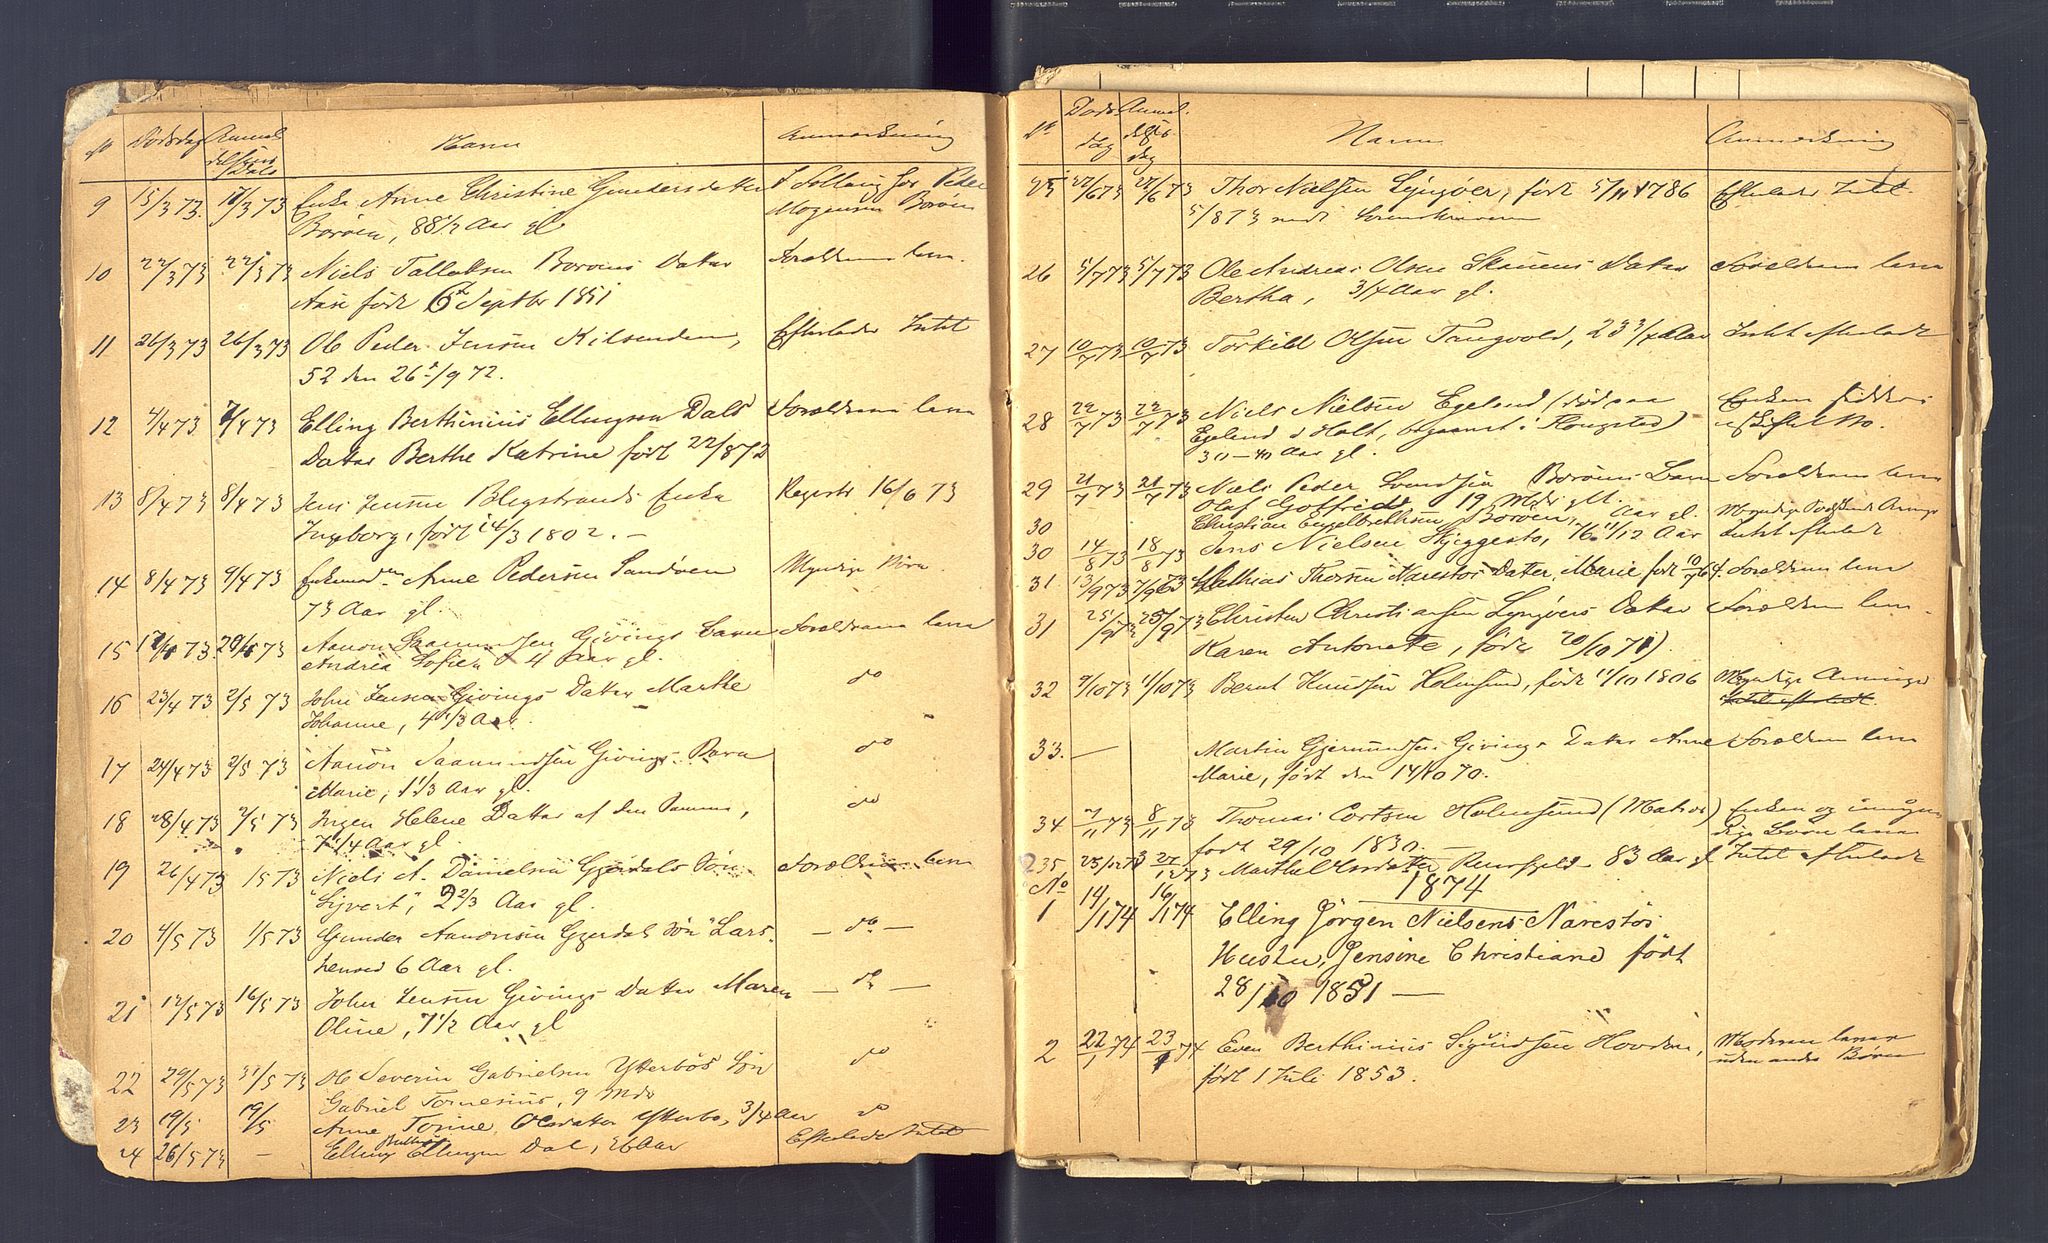 No Dødsdag Anmeldelsens Dato Navn Anmærkning
9 15/3 73. 17/3 73 Enke Anne Christine Gundersdatter
Borøen, 88 1/2 Aar gl. Peder Mogensen Borøen
10 22/3 73 22/3 73 Niels Tallaksen Borøens Datter Forældrene leve.
Aase født 6te Septbr 1851
11 26/3 73 26/3 73 Ole Peder Jensen Kilsenden, Efterlader Intet
52 den 26/9 72.
12 4/4 73 7/4 73 Elling Berthinius Ellingsen Dals Forældrene leve
Datter Berthe Katrine født 22/8 72
13 8/4 73 8/4 73 Jens Jensen Blegstrands Enke Registr 16/6 73
Ingeborg, født 14/3 1802. —
14 8/4 73 9/4 73 Enkemaden Arne Pedersen Sandøen Myndige
73 Aar gl.
15 73 73 Aanon Saamundsen Givings Barn Forældrene leve
Andrea Sofie 4 Aar gl.
16 23/4 73 2/5 73 John Jensen Givings Datter Marthe do
Johanne, 4 1/3 Aar
17 24/4 73 2/5 73 Aanon Saamundsen Givings Barn do
Marie, 1 1/3 Aar gl.
18 28/4 73 2/5 73 Ingen Helene Datter af den Samme, do
7 1/4 Aar gl.
19 26/4 73 1 5 73 Niels A. Danielsen Gjerdals Søn Forældrene leve
"Sijvert", 2 2/3 Aar gl.
20 4/5 73 1/5 73 Gunder Aanonsen Gjerdal Søn "Lars — do —
6 Aar gl.
21 12/5 73 16/5 73 John Jensen Givings Datter Maren — do —
Oline, 7 1/2 Aar gl
22 29/5 73 31/5 73 Ole Severin Gabrielsen Ytterbøs Søn do
Gabriel Tornesius, 9 Mdr
23 19/5 19/5 Anne Torine Olsdatter Ytterbø, 3/4 Aar do
24 26/5 73 — Elling Ellingsen Dal, 26 Aar Efterlader Intet
No Dødsdag Anmeldelsesdag Navn Anmærkning
25 22/6 73 22/6 73 Thor Nielsen Lyngøer, født 5/11 1786 Efterlader Intet.
5/8 73 medt
26 5/7 73 5/7 73 Ole Andreas Olsen Skauens Datter Forældrene leve
Bertha, 3/4 Aar gl.
27 10/7 73 10/7 73 Torkild Olsen Tangvold, 23 3/4 Aar Intet efterladt
28 22/7 73 22/7 73 Niels Nielsen Egeland (død paa Enken sidder
Egeland i Holt, i Flougstad) i uskiftet Bo.
30-40 Aar gl.
29 21/7 73 21/7 73 Niels Peder Svendsen Borøens Barn Forældrene leve
Olaf Gotfried 19 Mdr glt.
30 Christian Engelbrethsen Borøen, Aar gl. Myndige
30 14/8 73 18/8 73 Jens Nielsen Skjeggestø, 16 11/12 Aar Intet efterladt
31 13/9 73 73 Mathias Thorsen Narestøs Datter, Marie født 10/7 64. Forældrene leve
31 25/9 73 25/9 73 Christen Christiansen Lyngøers Datter Forældrene leve.
Karen Antonette, født 20/10 71)
32 9/10 73 11/10 73 Bernt Knudsen Holmsund, født 11/10 1806 Myndige Arvinger
Intet efterladt.
33. — Martin Gjermundsens Givings Datter Anne Forældrene leve
Marie, født den 14/10 70.
34 7/11 73 8/11 73 Thomas Cortsen Holmsund (Matros) Enken og umyndige Børn leve
født 29/10 1830. —
35 25/12 73 27/12 73 Marthe Olsdatter 83 Aar gl Intet efterladt
No 1874
1 14/1 74 16/1 74 Elling Jørgen Nielsens Narestøs
Hustru, Jensine Christiane født
28/10 1851 —
2 22/1 74 23/1 74 Even Berthinius Sigundsen Hovden, Moderen lever
født 1 Juli 1853. uden andre Børn